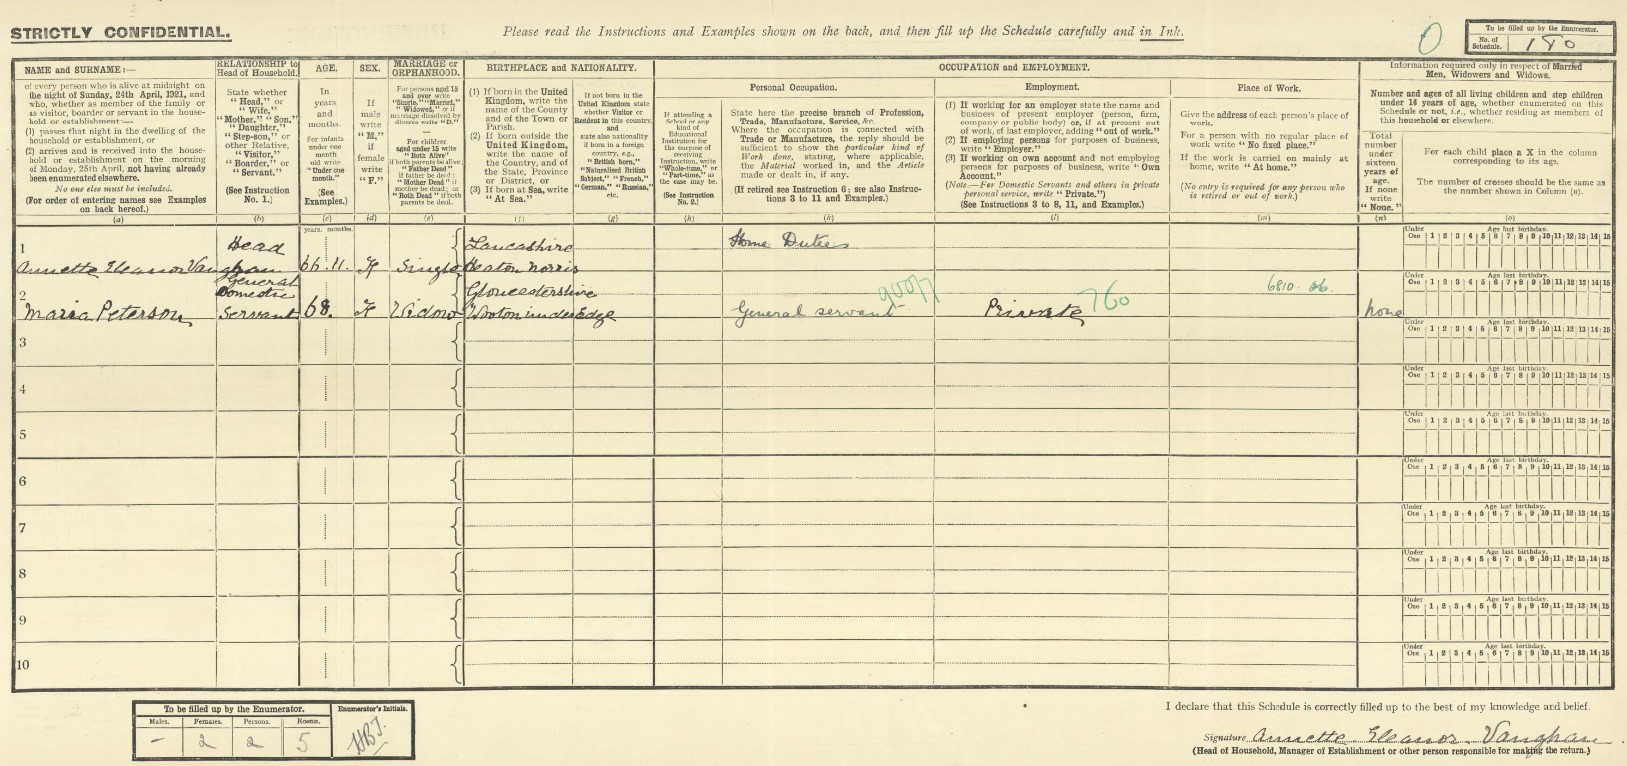 STRICTLY CONFIDENTIAL.
Please read the Instructions and Examples shown on the back, and then fill up the Schedule carefully and in Ink.
0
To be filled up by the Enumerator.
No. of Schedule. 180
NAME and SURNAME:—
of every person who is alive at midnight on
the night of Sunday, 24th April, 1921, and
who, whether as member of the family or
as visitor, boarder or servant in the house-
hold or establishment:—
(1) passes that night in the dwelling of the
household or establishment, or
(2) arrives and is received into the house-
hold or establishment on the morning
of Monday, 25th April, not having already
been enumerated elsewhere.
No one else must be included.
(For order of entering names see Examples
on back hereof.)
(a)
RELATIONSHIP to
Head of Household.
State whether
"Head," or
"Wife,"
"Mother," "Son,"
"Daughter,"
"Step-son," or
other Relative,
"Visitor,"
"Boarder," or
"Servant."
(See Instruction
No. 1.)
(b)
AGE.
In
years
and
months.
For infants
under one
month
old write
"Under one
month."
(See
Examples.)
(c)
SEX.
If
male
write
"M,"
if
female
write
"F."
(d)
MARRIAGE or
ORPHANHOOD.
For persons aged 15
and over write
"Single," "Married,"
"Widowed," or if
marriage dissolved by
divorce write "D."
—
For children
aged under 15 write
"Both Alive"
if both parents be alive;
"Father Dead"
if father be dead;
"Mother Dead" if
mother be dead; or
"Both Dead" if both
parents be dead.
(e)
BIRTHPLACE and NATIONALITY.
(1) If born in the United
Kingdom, write the
name of the County
and of the Town or
Parish.
(2) If born outside the
United Kingdom,
write the name of
the Country, and of
the State, Province
or District, or
(3) If born at Sea, write
"At Sea."
(f)
If not born in the
United Kingdom state
whether Visitor or
Resident in this country,
and
state also nationality
if born in a foreign
country, e.g.,
"British born,"
"Naturalised British
Subject," "French,"
"German," "Russian,"
etc.
(g)
OCCUPATION and EMPLOYMENT.
If attending a
School or any
kind of
Educational
Institution for
the purpose of
receiving
Instruction, write
"Whole-time," or
"Part-time," as
the case may be.
(See Instruction
No. 2.)
(h)
Personal Occupation.
State here the precise branch of Profession,
Trade, Manufacture, Service, &c.
Where the occupation is connected with
Trade or Manufacture, the reply should be
sufficient to show the particular kind of
Work done, stating, where applicable,
the Material worked in, and the Article
made or dealt in, if any.
(If retired see Instruction 6; see also Instruc-
tions 3 to 11 and Examples.)
(k)
Employment.
(1) If working for an employer state the name and
business of present employer (person, firm,
company or public body) or, if at present out
of work, of last employer, adding "out of work."
(2) If employing persons for purposes of business,
write "Employer."
(3) If working on own account and not employing
persons for purposes of business, write "Own
Account."
(Note.—For Domestic Servants and others in private
personal service, write "Private.")
(See Instructions 3 to 8, 11, and Examples.)
(l)
Place of Work.
Give the address of each person's place of
work.
For a person with no regular place of
work write "No fixed place."
If the work is carried on mainly at
home, write "At home."
(No entry is required for any person who
is retired or out of work.)
(m)
Information required only in respect of Married
Men, Widowers and Widows.
Number and ages of all living children and step children
under 16 years of age, whether enumerated on this
Schedule or not, i.e., whether residing as members of
this household or elsewhere.
Total
number
under
sixteen
years of
age.
If none
write
"None."
(n)
For each child place a X in the column
corresponding to its age.
The number of crosses should be the same as
the number shown in Column (n).
(o)
years. months.
Under One Age last birthday. 1 2 3 4 5 6 7 8 9 10 11 12 13 14 15
1 Annette Eleanor Vaughan Head 66 . 11. F Single Lancashire Heaton Norris Home Duties
Under One Age last birthday. 1 2 3 4 5 6 7 8 9 10 11 12 13 14 15
2 Maria Peterson General Domestic Servant 68. F Widow Gloucestershire Wooton under Edge General servant 900/7 Private 760 6810 . 06. None
Under One Age last birthday. 1 2 3 4 5 6 7 8 9 10 11 12 13 14 15
3
Under One Age last birthday. 1 2 3 4 5 6 7 8 9 10 11 12 13 14 15
4
Under One Age last birthday. 1 2 3 4 5 6 7 8 9 10 11 12 13 14 15
5
Under One Age last birthday. 1 2 3 4 5 6 7 8 9 10 11 12 13 14 15
6
Under One Age last birthday. 1 2 3 4 5 6 7 8 9 10 11 12 13 14 15
7
Under One Age last birthday. 1 2 3 4 5 6 7 8 9 10 11 12 13 14 15
8
Under One Age last birthday. 1 2 3 4 5 6 7 8 9 10 11 12 13 14 15
9
Under One Age last birthday. 1 2 3 4 5 6 7 8 9 10 11 12 13 14 15
10
To be filled up by the Enumerator.
Males. Females. Persons. Rooms.
– 2 2 5
Enumerator's Initials.
HBJ.
I declare that this Schedule is correctly filled up to the best of my knowledge and belief.
Signature Annette Eleanor Vaughan.
(Head of Household, Manager of Establishment or other person responsible for making the return.)